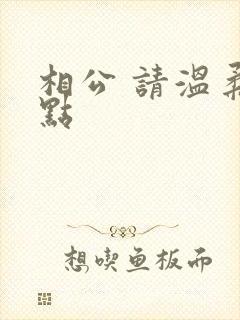 相公 請溫柔
點
想喫鱼板而